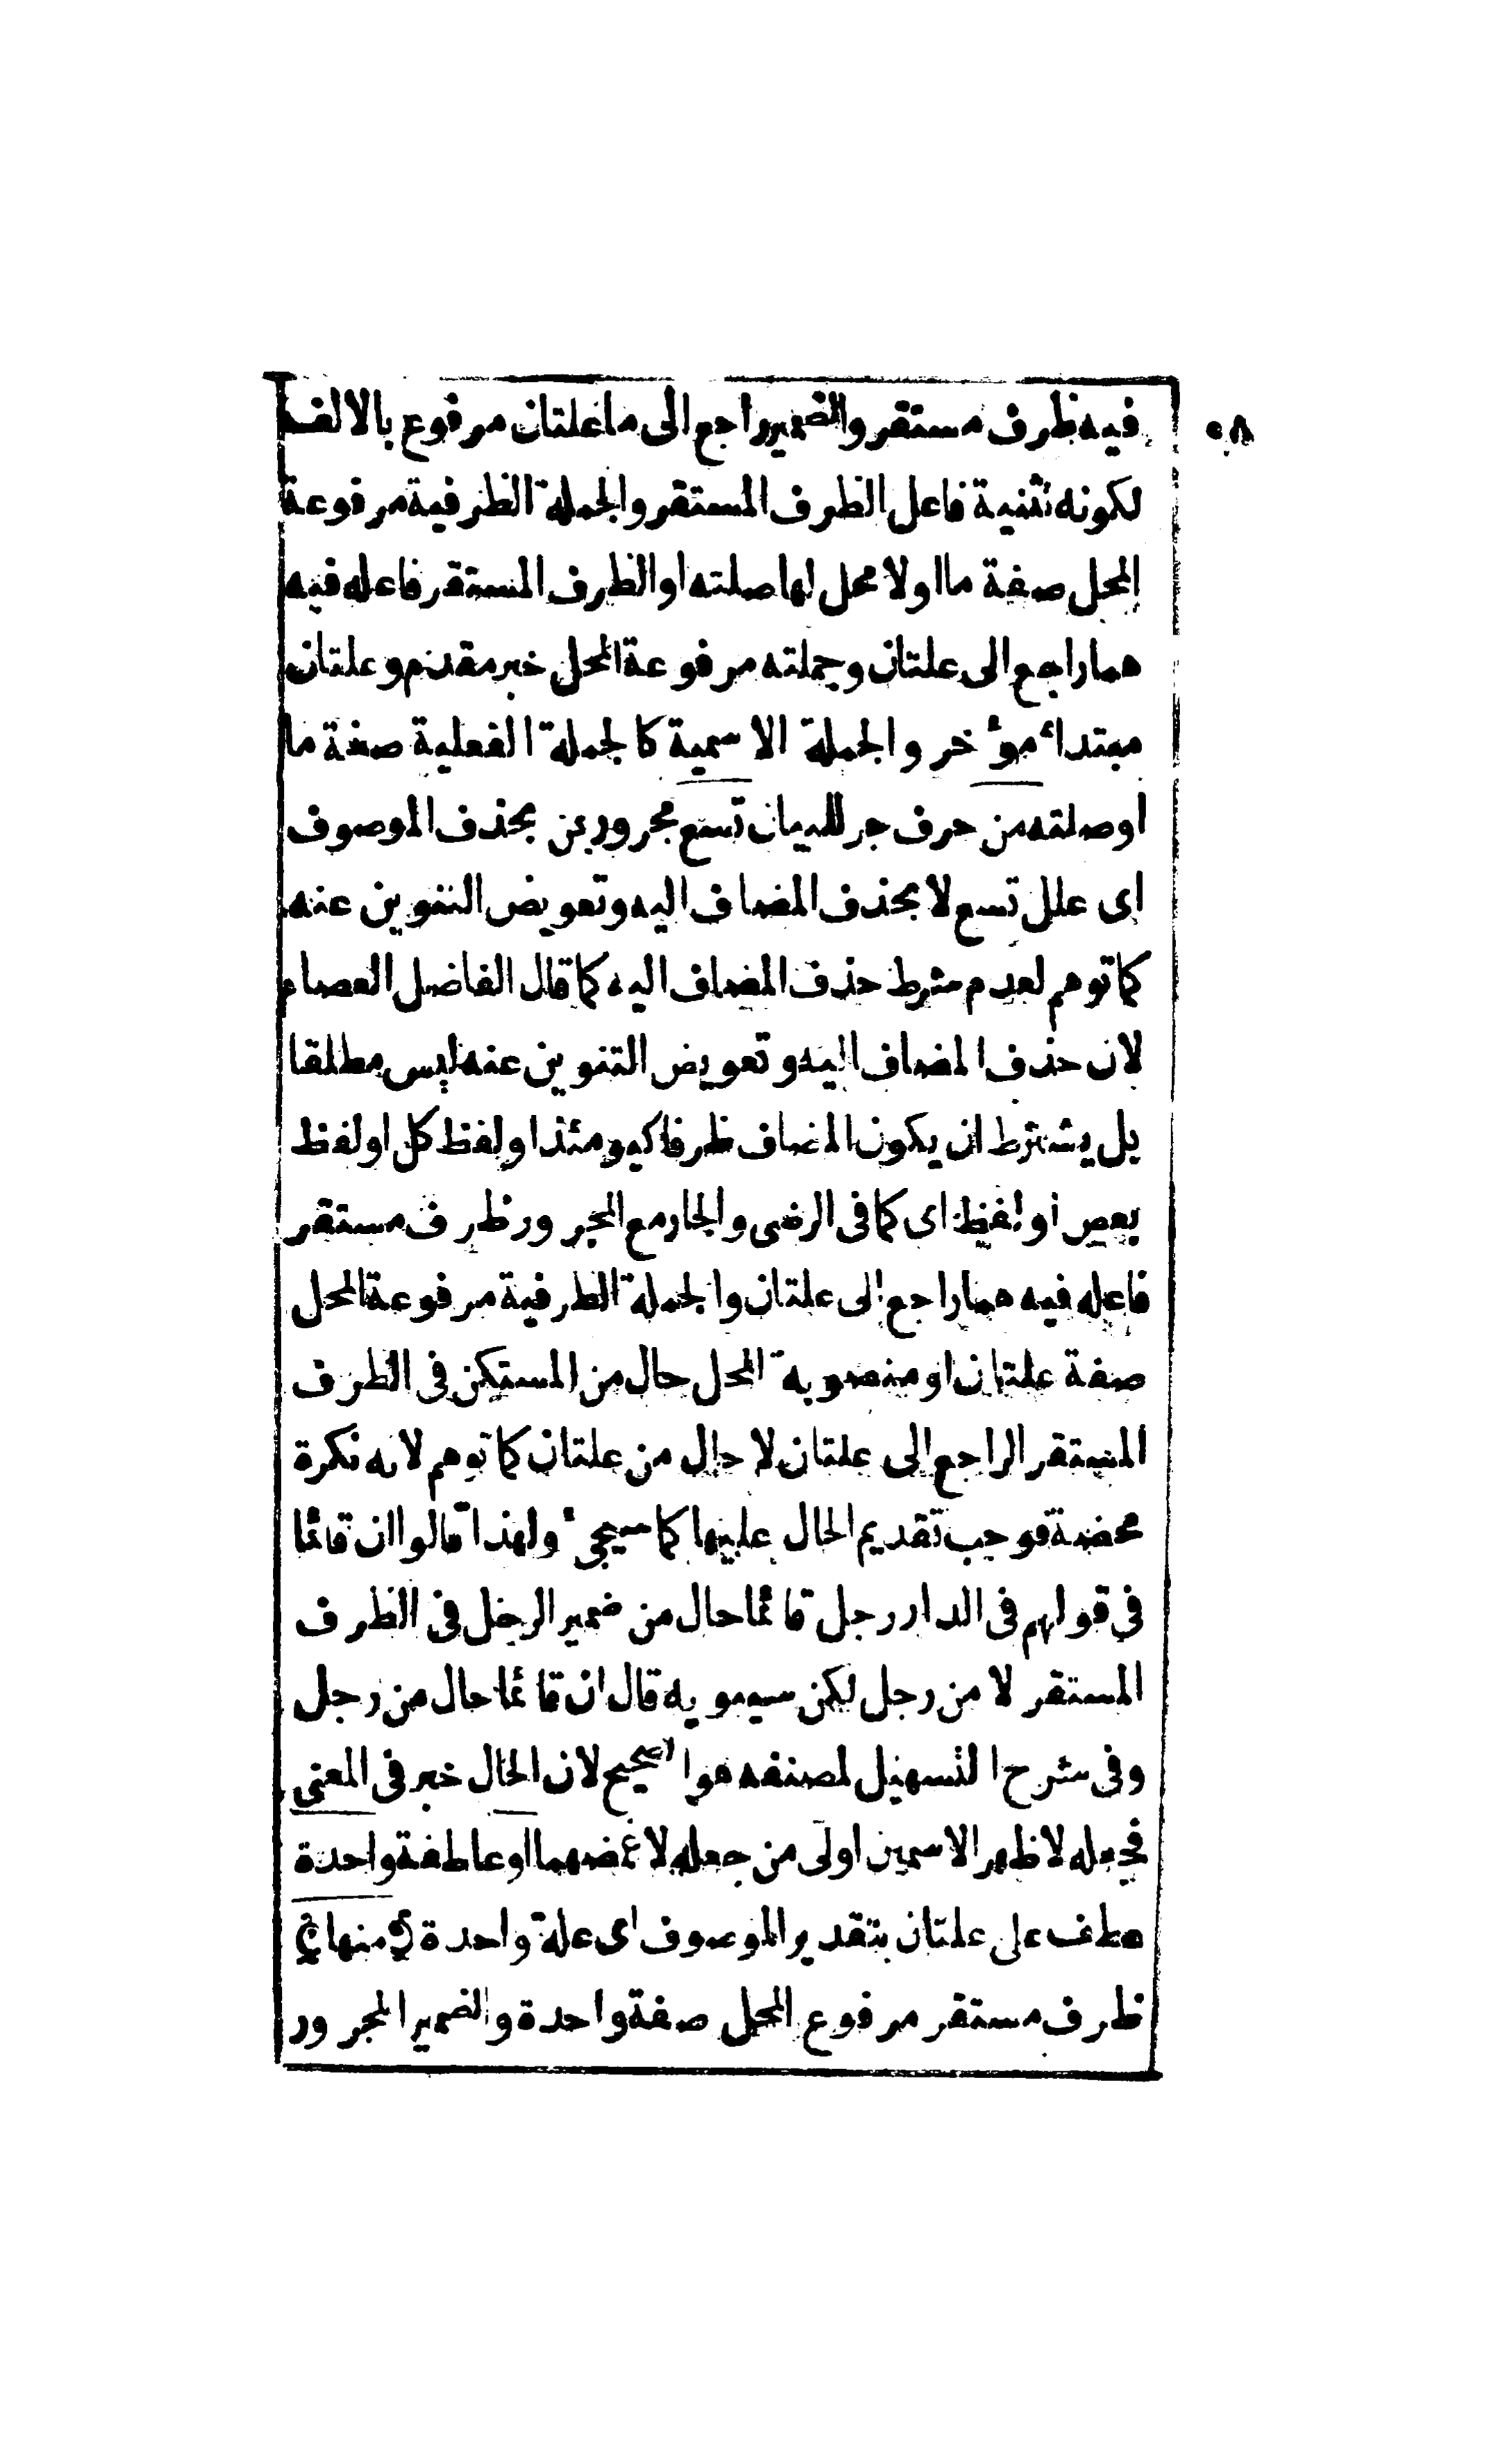 ٨٠
فيه ظرف مستقر والضمير راجع الى ما علتان مرفوع بالالف
لكونه تثنية فاعل الظرف المستقر والجملة الظرفية مرفوعة
المحل صفة ما اولا محل لها صلته او الظرف المستقر فاعله فيه
هما راجع الى علتان وجملته مرفوعة المحل خبر مقدم وعلتان
مبتداء مؤخر والجملة الاسمية كالجملة الفعلية صفة ما
اوصلته من حرف جر للبيان تسع مجرور بمن بحذف الموصوف
اى علل تسع لا بحذف المضاف اليه وتعويض التنوين عنه
كما توهم لعدم شرط حذف المضاف اليه كما قال الفاضل العصام
لان حذف المضاف اليه وتعويض التنوين عنه ليس مطلقا
بل يشترط ان يكون المضاف ظرفا كيومئذ اولفظ كل اولفظ
بعض أو لفظ اى كما فى الرضى والجار مع المجرور ظرف مستقر
فاعله فيه هما راجع الى علتان والجملة الظرفية مرفوعة المحل
صفة علتان او منصوبة المحل حال من المستكن فى الظرف
المستقر الراجع الى علتان لا حال من علتان كما توهم لانه نكرة
محضة فوجب تقديم الحال عليها كما سيجئ ولهذا قالوا ان قائما
فى قولهم فى الدار رجل قائما حال من ضمير الرجل فى الظرف
المستقر لا من رجل لكن سيبويه قال ان قائما حال من رجل
وفى شرح التسهيل لمصنفه هو الصحيح لان الحال خبر فى المعنى
فجعله لاظهر الاسمين اولى من جعله لاغمضهما او عاطفة واحدة
عطف على علتان بتقدير الموصوف اى علة واحدة ﴿ منها ﴾
ظرف مستقر مرفوع المحل صفة واحدة والضمير المجرور